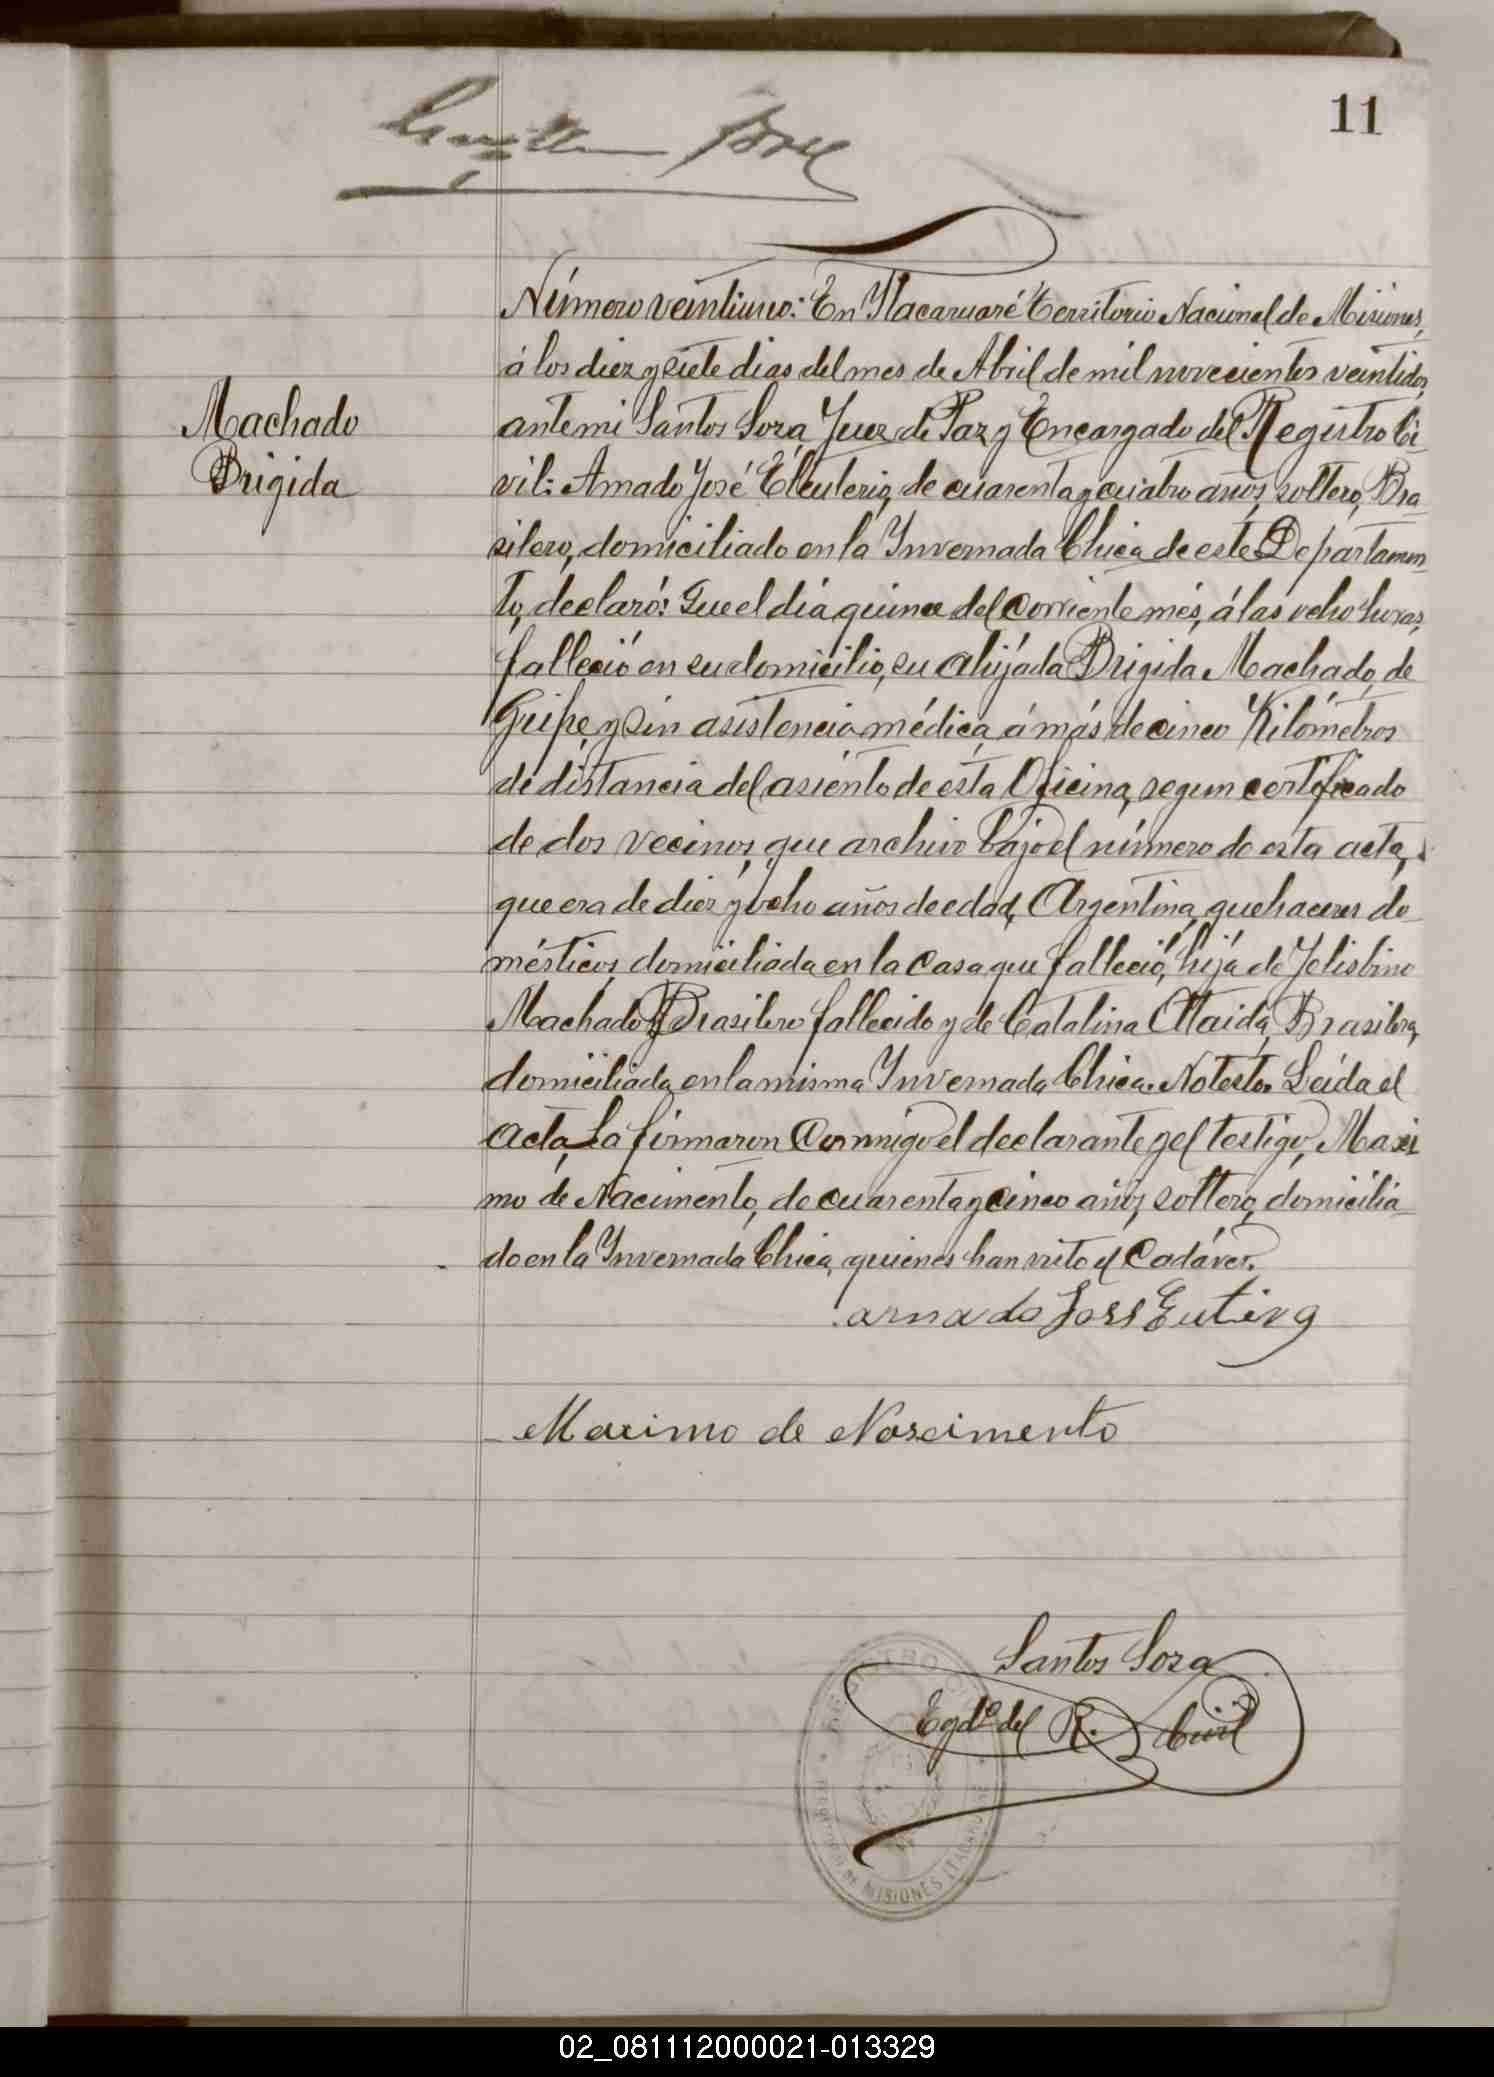 11
Número veintiuno: En Itacaruaré Territorio Nacional de Misiones,
á los diez y siete dias del mes de Abril de mil novecientos veintidos,
Machado
Brigida
ante mi Santos Soza, Juez de Paz y Encargado del Registro Ci-
vil: Amado José Eleuterio, de cuarenta y cuatro años, soltero, Bra-
silero, domiciliado en la Invernada Chica de este Departamen-
to, declaró: Que el día quince del corriente més, á las ocho horas,
falleció en su domicilio, su ahijada Brigida Machado, de
Gripe, y sin asistencia médica, á más de cinco Kilómetros
de distancia del asiento de esta Oficina, segun certificado
de dos vecinos, que archivo bajo el número de esta acta,
que era de diez y ocho años de edad, Argentina, quehaceres do-
mésticos, domiciliada en la casa que falleció, hija de Jelisbino
Machado, Brasilero fallecido y de Catalina Ataida, Brasilera,
domiciliada en la misma Invernada Chica. No testó. Leída el
acta, La firmaron conmigo el declarante y el testigo, Maxi
mo de Nacimento, de cuarenta y cinco años, soltero, domicilia-
do en la Invernada Chica, quienes han visto el Cadáver.
amado José Eutirg
Maximo de Noscimento
Santos Soza
Egdº del R. Civil
REGISTRO
MISIONES ITACARUARÉ
02_081112000021-013329